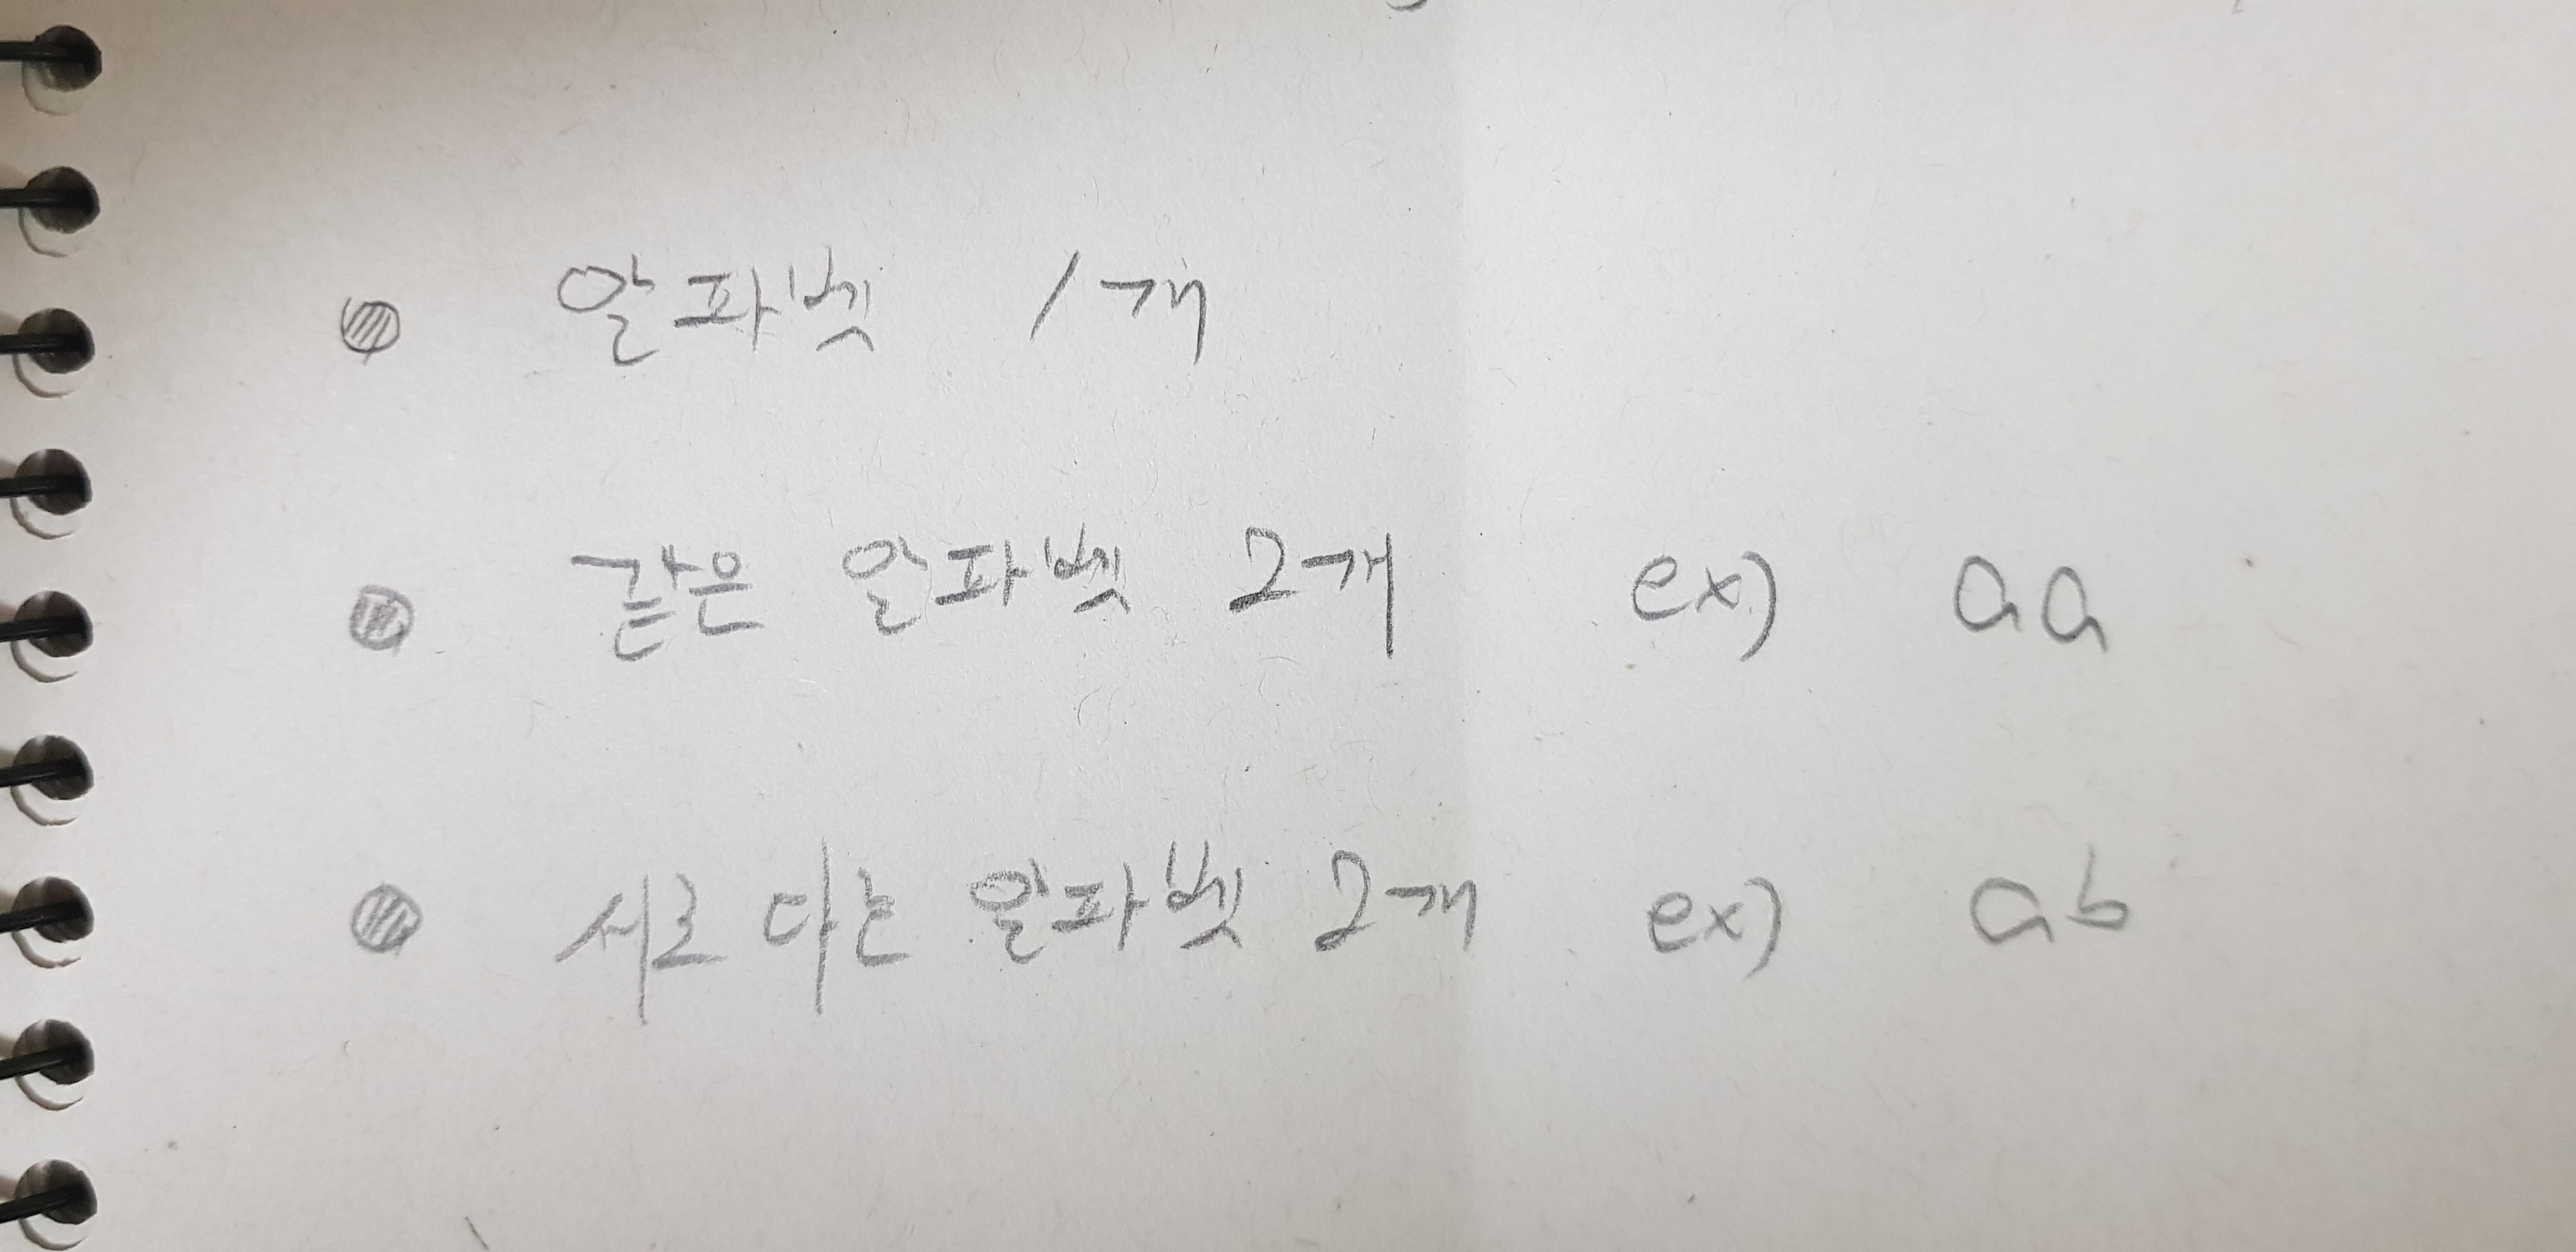 ● 알파벳 1개
● 같은 알파벳 2개 ex) aa
● 서로 다른 알파벳 2개 ex) ab